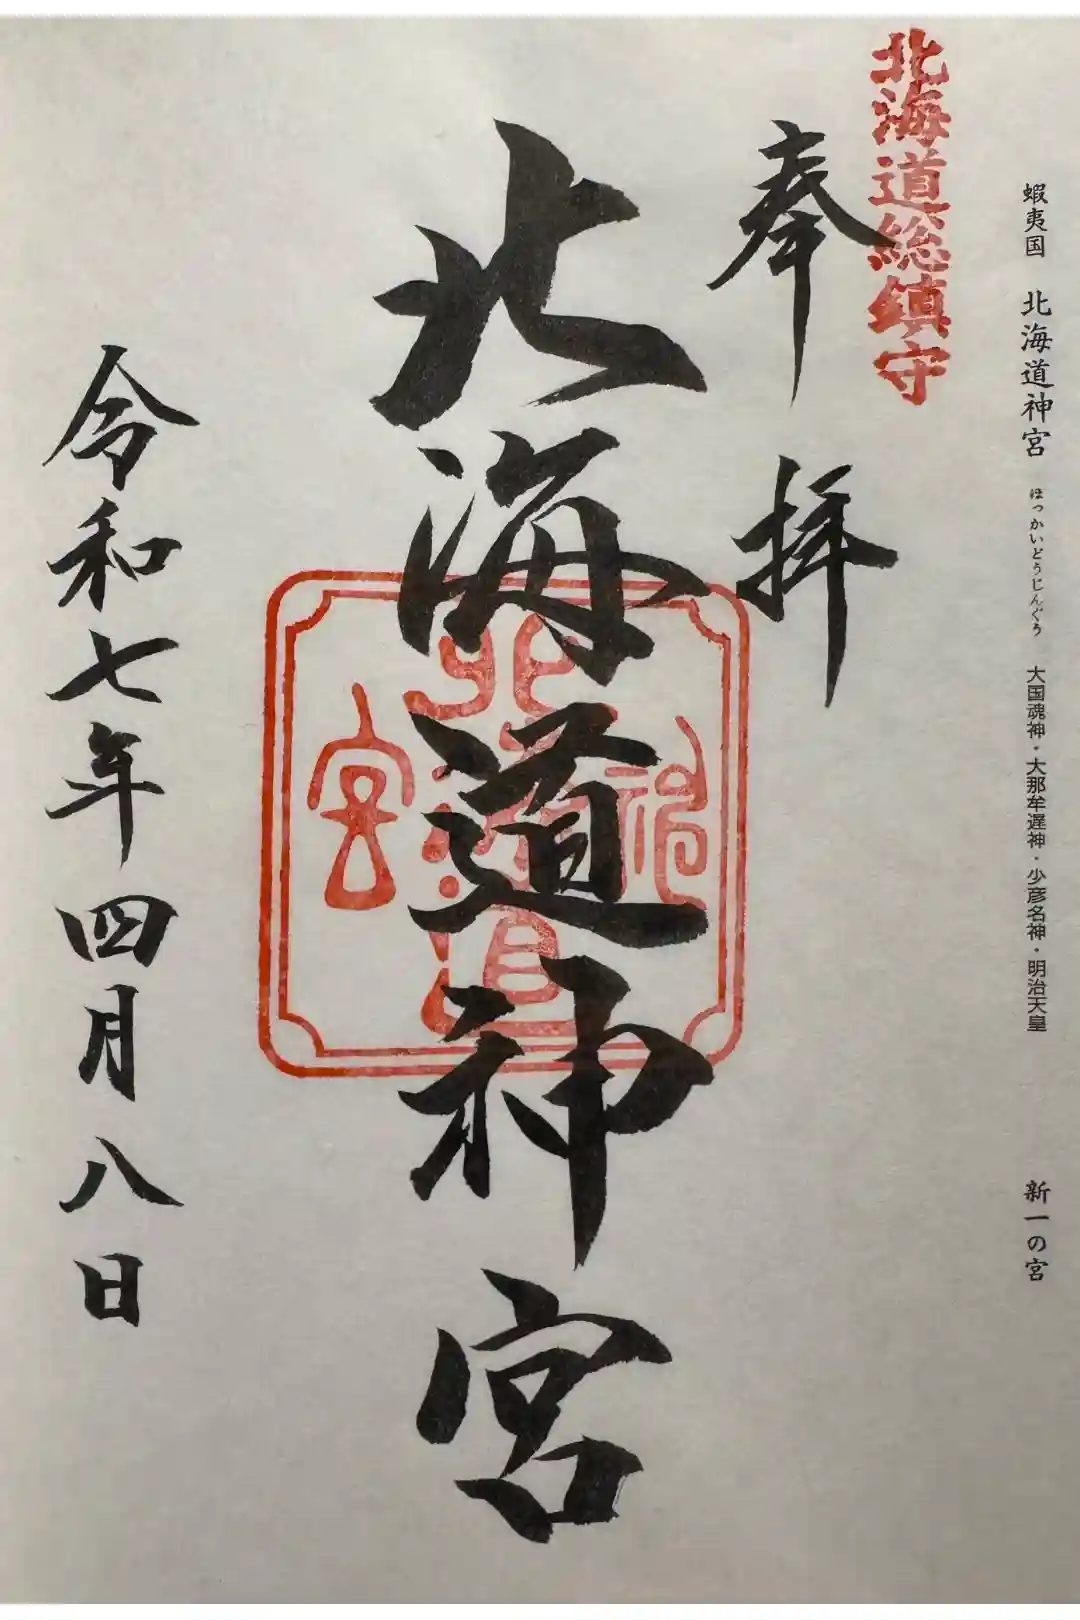 蝦夷国 北海道神宮 ほっかいどうじんぐう 大国魂神・大那牟遅神・少彦名神・明治天皇 新一の宮
北海道総鎮守
奉拝
北海道神宮
北海道
神
宮
令和七年四月八日